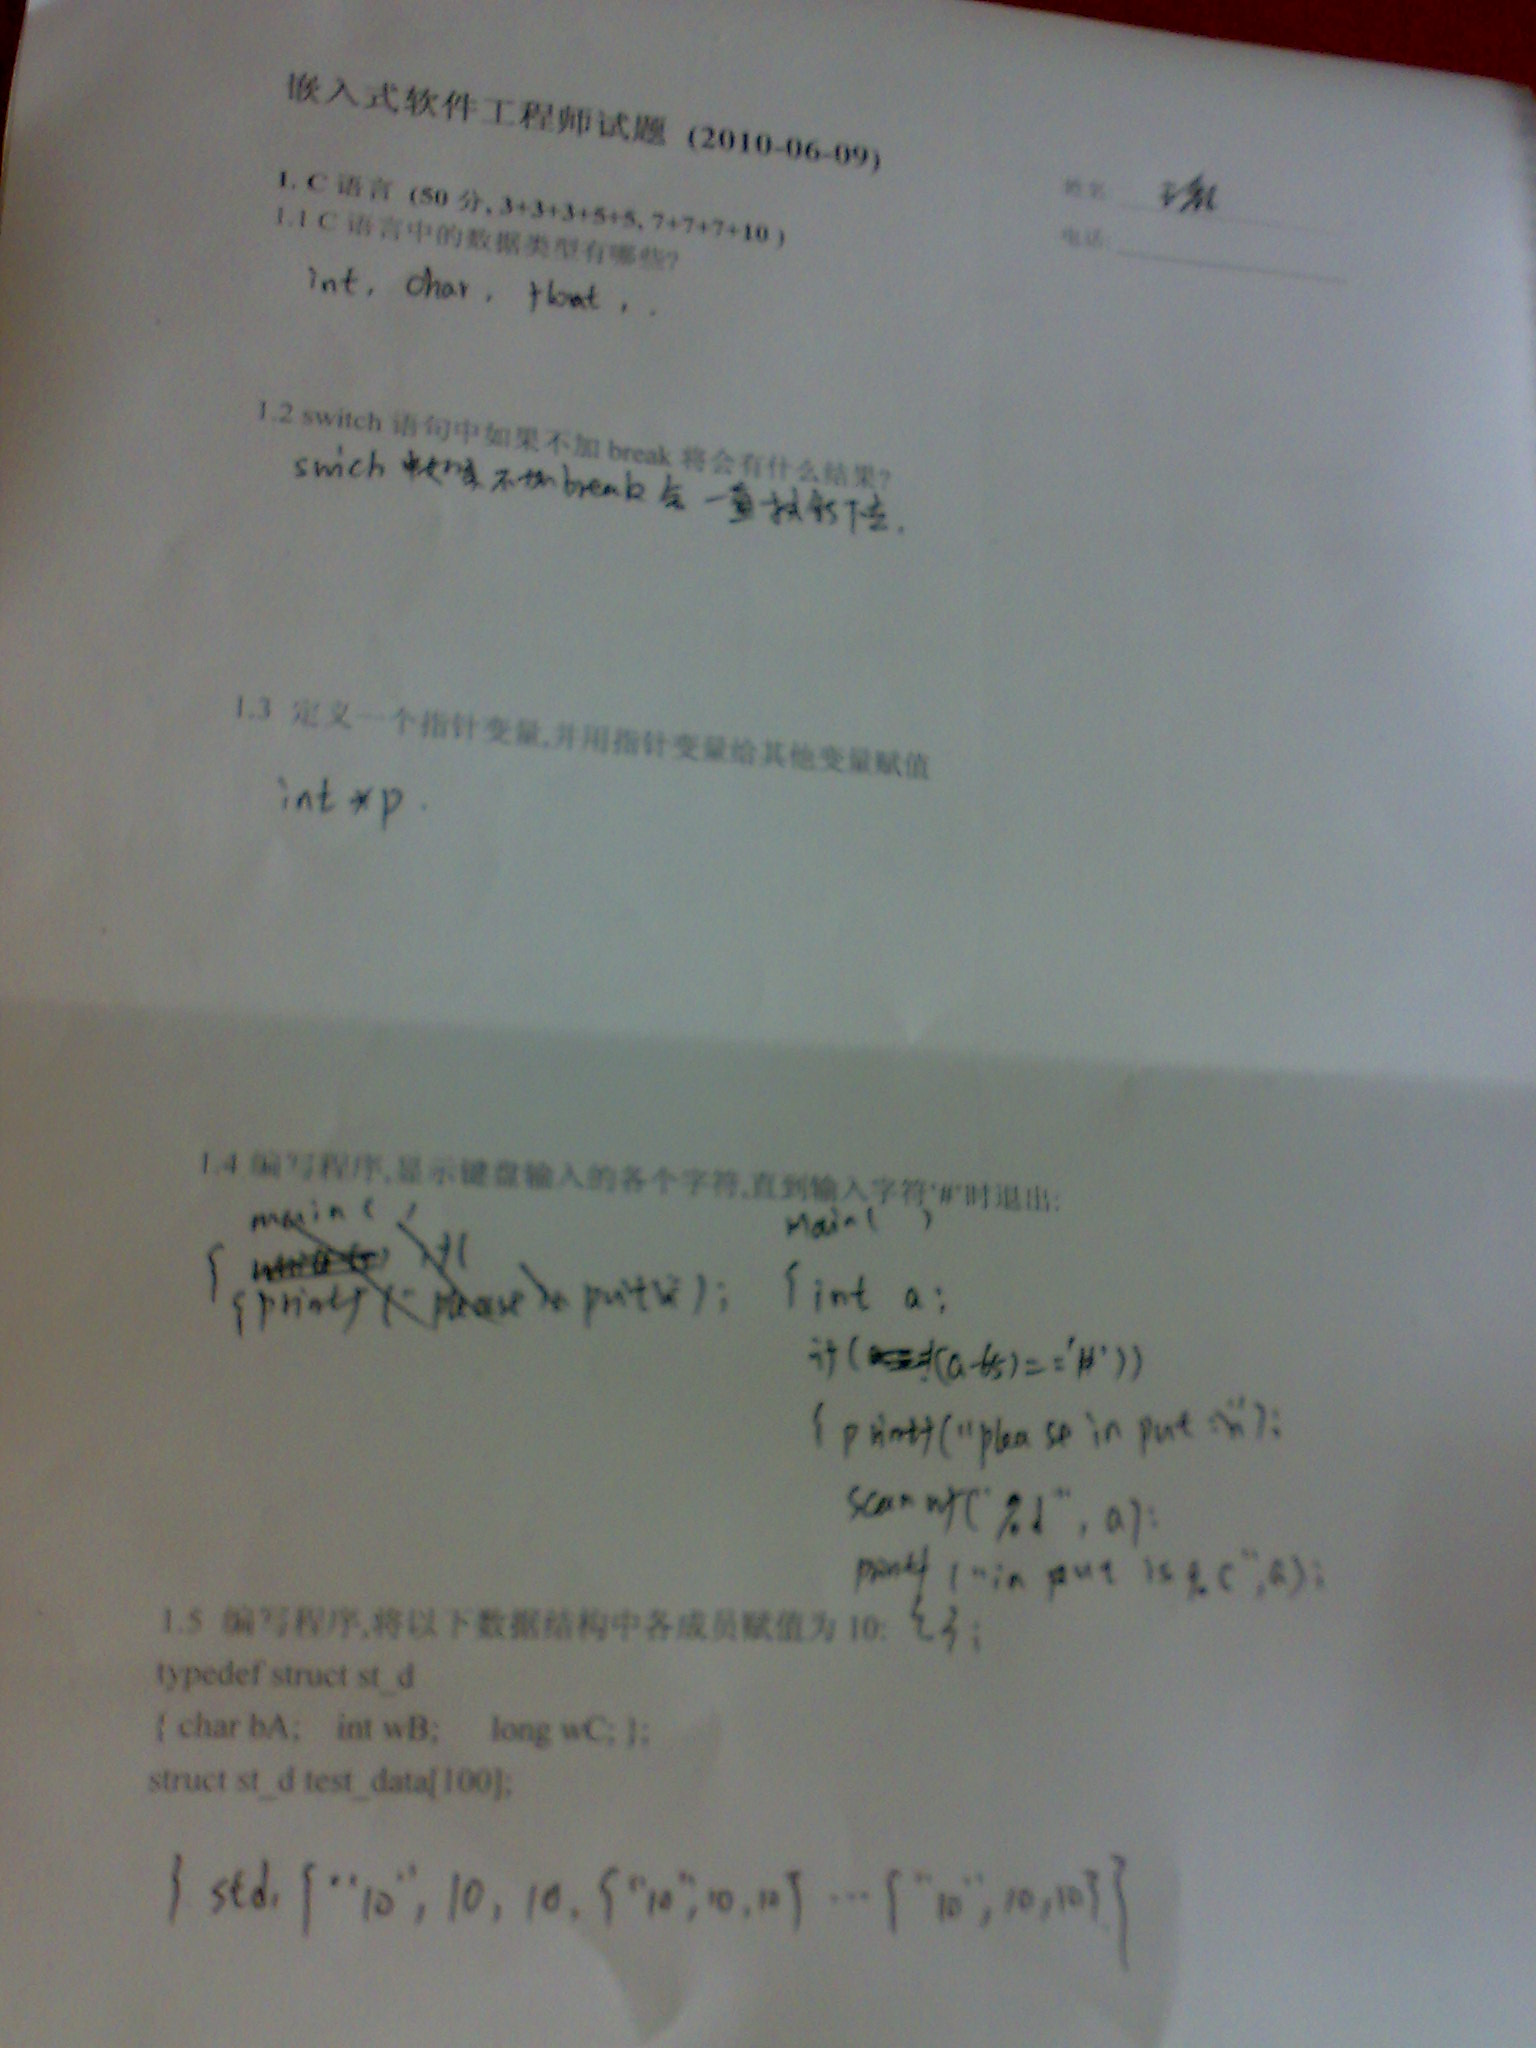 嵌入式软件工程师试题 (2010-06-09)
姓名:
电话:
1. C 语言 (50 分, 3+3+3+5+5, 7+7+7+10 )
1.1 C 语言中的数据类型有哪些?
int, char, float, .
1.2 switch 语句中如果不加 break 将会有什么结果?
swich 不加break会一直执行下去.
1.3 定义一个指针变量,并用指针变量给其他变量赋值
int *p.
1.4 编写程序,显示键盘输入的各个字符,直到输入字符'#'时退出:
main( )
{
{printf ("please
main( )
{ int a;
if( (a-65)=='#'))
{ printf("please in put :\n");
scannf("%d", a);
printf ("in put is %c",a);
{ };
1.5 编写程序,将以下数据结构中各成员赋值为 10:
typedef struct st_d
{ char bA; int wB; long wC; };
struct st_d test_data[100];
} std. {"10", 10, 10, {"10",10,10} ... {"10",10,10}}